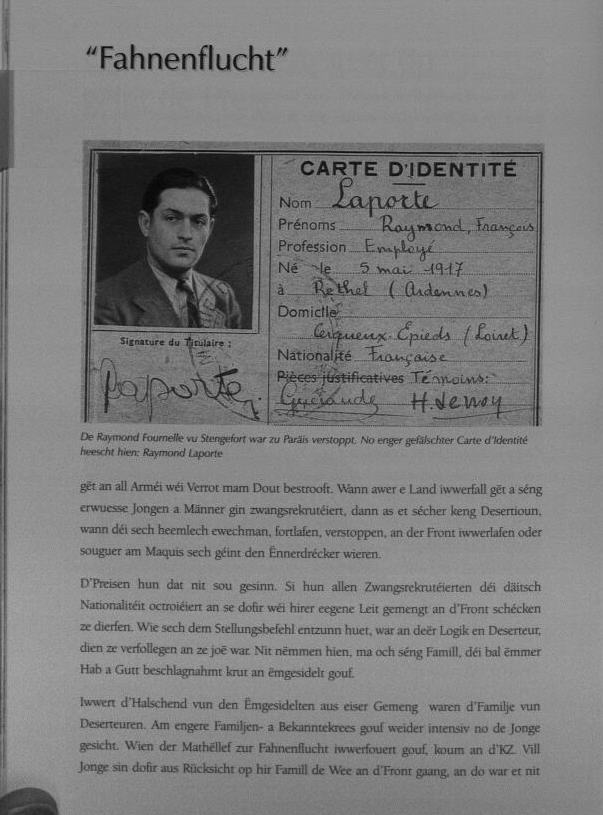 "Fahnenflucht"
CARTE D'IDENTITÉ
Nom Laporte
Prénoms Raymond, François
Profession Employé
Né le 5 mai 1917
à Rethel (Ardennes)
Domicile
Cerqueux. Epieds (Loiret)
Nationalité Française
Pièces justificatives Témoins:
H. Lenoy
Signature du Titulaire :
Laporte
De Raymond Fournelle vu Stengefort war zu Paräis verstoppt. No enger gefälschter Carte d'Identité
heescht hien: Raymond Laporte
gët an all Arméi wéi Verrot mam Dout bestrooft. Wann awer e Land iwwerfall gët a séng
erwuesse Jongen a Männer gin zwangsrekrutéiert, dann as et sécher keng Desertioun,
wann déi sech heemlech ewechman, fortlafen, verstoppen, an der Front iwwerlafen oder
souguer am Maquis sech géint den Ënnerdrécker wieren.
D'Preisen hun dat nit sou gesinn. Si hun allen Zwangsrekrutéierten déi däitsch
Nationalitéit octroiéiert an se dofir wéi hirer eegene Leit gemengt an d'Front schécken
ze dierfen. Wie sech dem Stellungsbefehl entzunn huet, war an deër Logik en Deserteur,
dien ze verfollegen an ze joë war. Nit nëmmen hien, ma och séng Famill, déi bal ëmmer
Hab a Gutt beschlagnahmt krut an ëmgesidelt gouf.
Iwwert d'Halschend vun den Ëmgesidelten aus eiser Gemeng waren d'Familje vun
Deserteuren. Am engere Familjen- a Bekanntekrees gouf weider intensiv no de Jonge
gesicht. Wien der Mathëllef zur Fahnenflucht iwwerfouert gouf, koum an d'KZ. Vill
Jonge sin dofir aus Rücksicht op hir Famill de Wee an d'Front gaang, an do war et nit